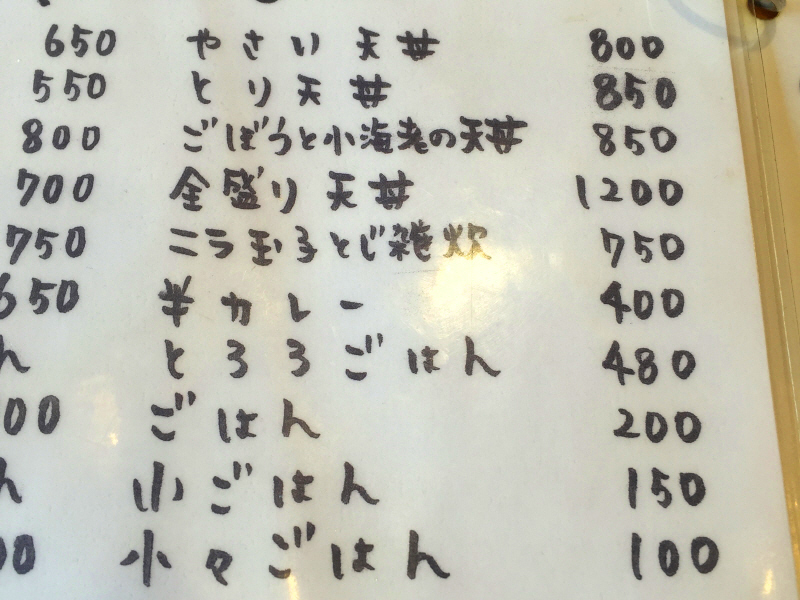 650 やさい天丼 800
550 とり天丼 850
800 ごぼうと小海老の天丼 850
700 全盛り天丼 1200
750 ニラ玉子とじ雑炊 750
650 半カレー 400
ん とろろごはん 480
00 ごはん 200
ん 小ごはん 150
00 小々ごはん 100